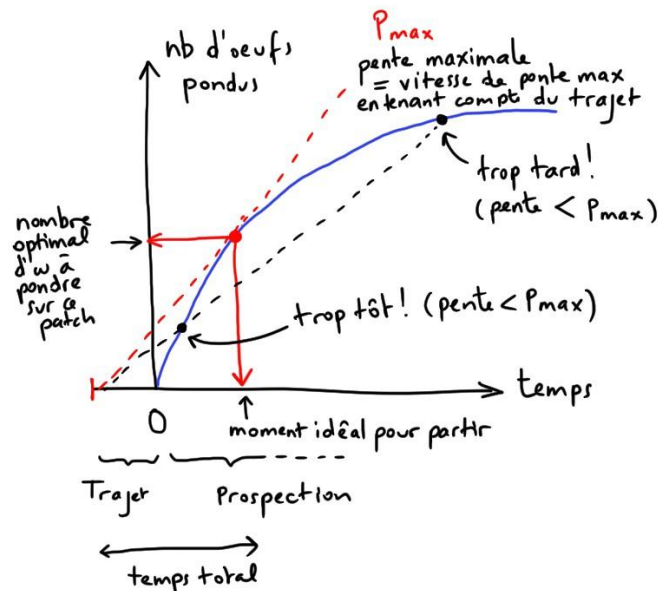 Pmax
nb d'oeufs
pondus
pente maximale
= vitesse de ponte max
en tenant compt du trajet
trop tard!
(pente < Pmax)
nombre
optimal
d'œ à
pondre
sur ce
patch
trop tôt! (pente < Pmax)
temps
0
moment idéal pour partir
Trajet
Prospection
temps total